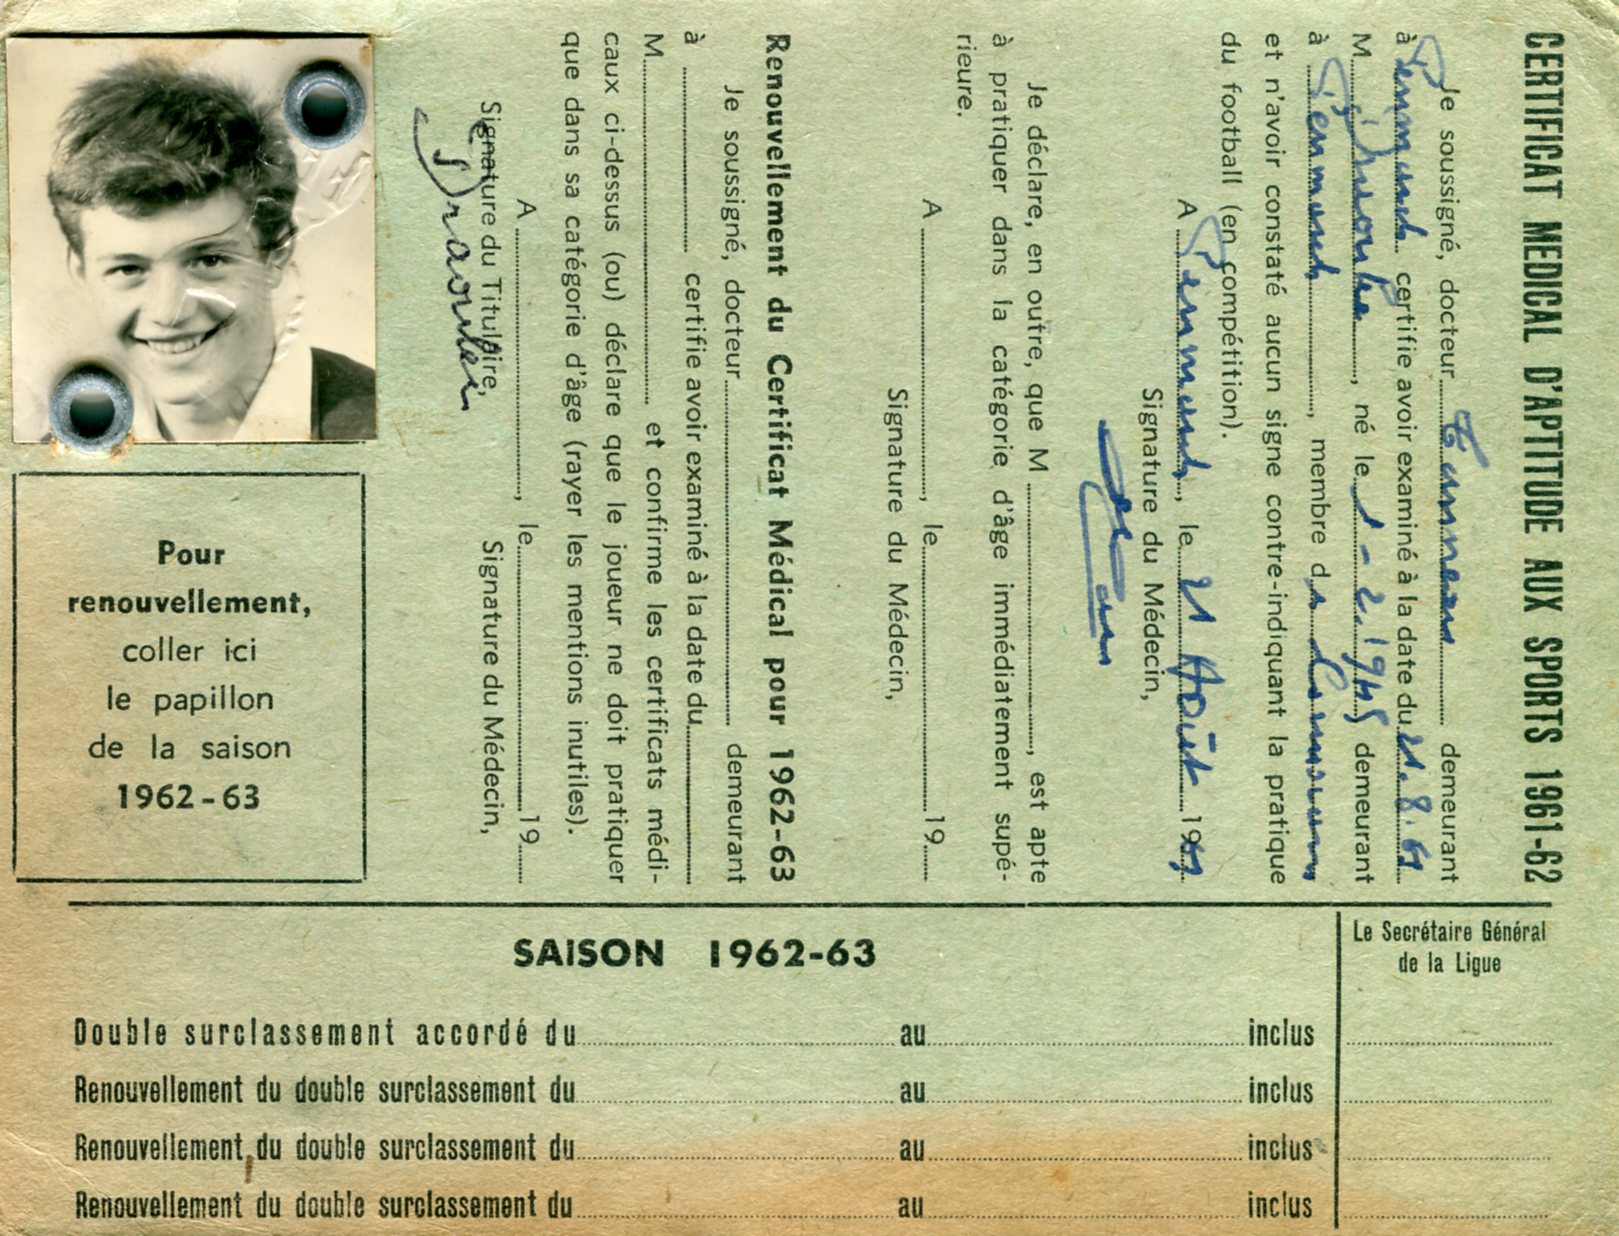 CERTIFICAT MEDICAL D'APTITUDE AUX SPORTS 1961-62
Je soussigné, docteur demeurant
à Penmarch certifie avoir examiné à la date du 21.8.61
M. Draoulec, né le 1-2.1945 demeurant
à Penmarch, membre d
et n'avoir constaté aucun signe contre-indiquant la pratique
du football (en compétition).
A Penmarch, le 21 Août 1961
Signature du Médecin,
Je déclare, en outre, que M , est apte
à pratiquer dans la catégorie d'âge immédiatement supé-
rieure.
A , le 19
Signature du Médecin,
Renouvellement du Certificat Médical pour 1962-63
Je soussigné, docteur demeurant
à certifie avoir examiné à la date du
M. et confirme les certificats médi-
caux ci-dessus (ou) déclare que le joueur ne doit pratiquer
que dans sa catégorie d'âge (rayer les mentions inutiles).
A , le 19
Signature du Titulaire, Signature du Médecin,
Pour
renouvellement,
coller ici
le papillon
de la saison
1962-63
SAISON 1962-63
Le Secrétaire Général
de la Ligue
Double surclassement accordé du au inclus
Renouvellement du double surclassement du au inclus
Renouvellement du double surclassement du au inclus
Renouvellement du double surclassement du au inclus